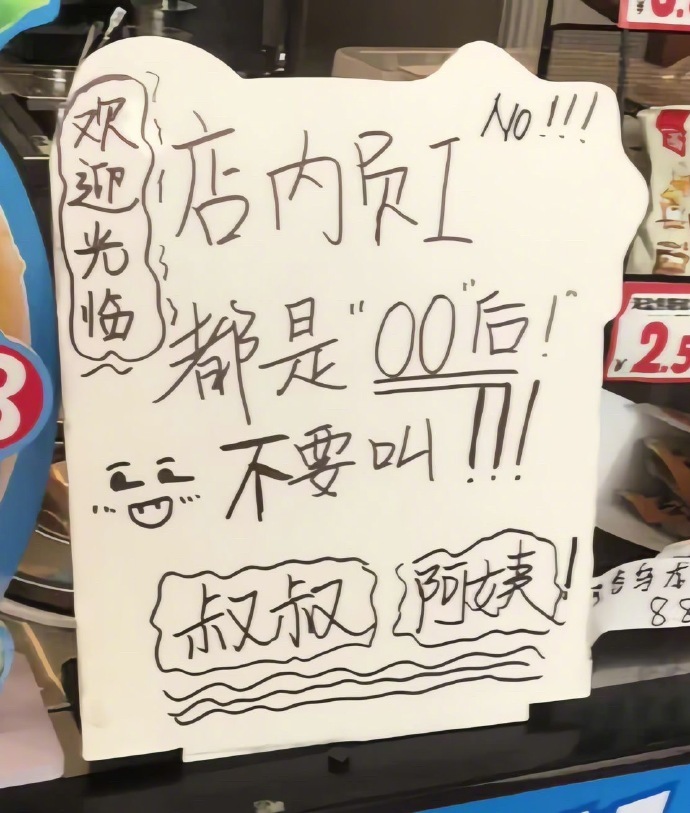 欢迎光临
NO!!!
店内员工
都是"00"后!
不要叫!!!
叔叔 阿姨!
2.5
88